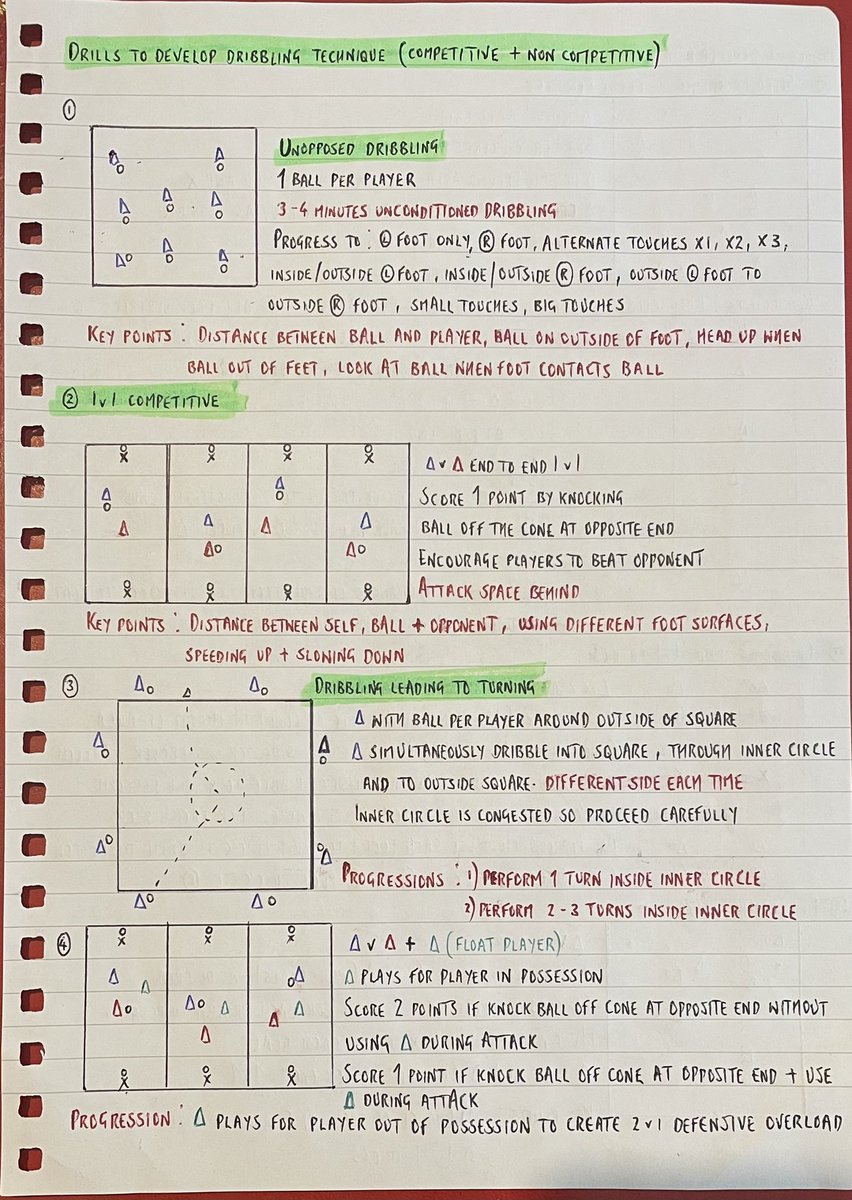 DRILLS TO DEVELOP DRIBBLING TECHNIQUE (COMPETITIVE + NON COMPETITIVE)
①
UNOPPOSED DRIBBLING
1 BALL PER PLAYER
3-4 MINUTES UNCONDITIONED DRIBBLING
PROGRESS TO: Ⓛ FOOT ONLY, Ⓡ FOOT, ALTERNATE TOUCHES X1, X2, X3,
INSIDE/OUTSIDE Ⓛ FOOT, INSIDE/OUTSIDE Ⓡ FOOT, OUTSIDE Ⓛ FOOT TO
OUTSIDE Ⓡ FOOT, SMALL TOUCHES, BIG TOUCHES
KEY POINTS: DISTANCE BETWEEN BALL AND PLAYER, BALL ON OUTSIDE OF FOOT, HEAD UP WHEN
BALL OUT OF FEET, LOOK AT BALL WHEN FOOT CONTACTS BALL
② 1v1 COMPETITIVE
Δ v Δ END TO END 1v1
SCORE 1 POINT BY KNOCKING
BALL OFF THE CONE AT OPPOSITE END
ENCOURAGE PLAYERS TO BEAT OPPONENT
ATTACK SPACE BEHIND
KEY POINTS: DISTANCE BETWEEN SELF, BALL + OPPONENT, USING DIFFERENT FOOT SURFACES,
SPEEDING UP + SLOWING DOWN
③ DRIBBLING LEADING TO TURNING
Δ WITH BALL PER PLAYER AROUND OUTSIDE OF SQUARE
Δ SIMULTANEOUSLY DRIBBLE INTO SQUARE, THROUGH INNER CIRCLE
AND TO OUTSIDE SQUARE. DIFFERENT SIDE EACH TIME
INNER CIRCLE IS CONGESTED SO PROCEED CAREFULLY
PROGRESSIONS: 1) PERFORM 1 TURN INSIDE INNER CIRCLE
2) PERFORM 2-3 TURNS INSIDE INNER CIRCLE
④ Δ v Δ + Δ (FLOAT PLAYER)
Δ PLAYS FOR PLAYER IN POSSESSION
SCORE 2 POINTS IF KNOCK BALL OFF CONE AT OPPOSITE END WITHOUT
USING Δ DURING ATTACK
SCORE 1 POINT IF KNOCK BALL OFF CONE AT OPPOSITE END + USE
Δ DURING ATTACK
PROGRESSION: Δ PLAYS FOR PLAYER OUT OF POSSESSION TO CREATE 2v1 DEFENSIVE OVERLOAD